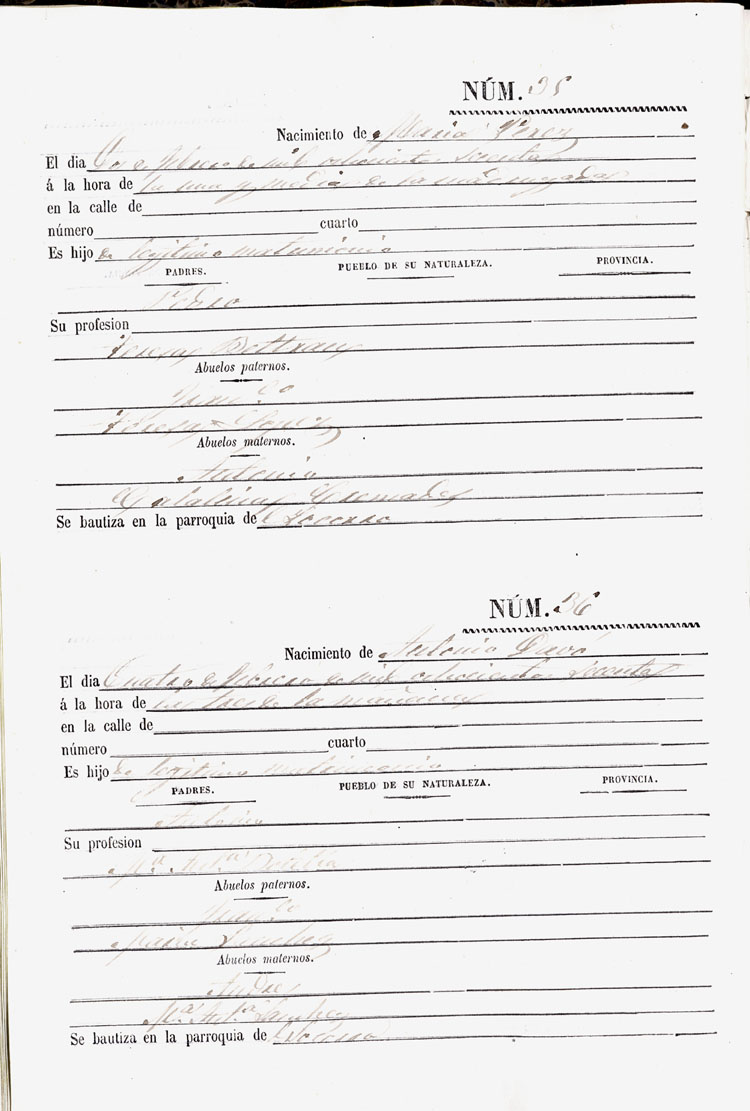 NÚM. 35
Nacimiento de Maria Perez
El dia Dos de Febrero de mil ochocientos Sesenta
á la hora de la una y media de la madrugada
en la calle de
número cuarto
Es hijo de legitimo matrimonio
PADRES. PUEBLO DE SU NATURALEZA. PROVINCIA.
Pedro
Su profesion
Teresa Beltran
Abuelos paternos.
Fran.co
Teresa Lopez
Abuelos maternos.
Antonio
Catalina Cremades
Se bautiza en la parroquia de Socorro
NÚM. 36
Nacimiento de Antonio Davó
El dia Cuatro de Febrero de mil ochocientos Sesenta
á la hora de las tres de la mañana
en la calle de
número cuarto
Es hijo de legitimo matrimonio
PADRES. PUEBLO DE SU NATURALEZA. PROVINCIA.
Antonio
Su profesion
M.a Ant.a
Abuelos paternos.
Fran.co
Maria Sanchez
Abuelos maternos.
Andres
M.a Ant.a Sanchez
Se bautiza en la parroquia de Socorro